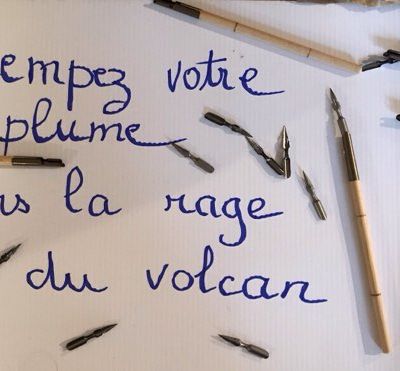 empez votre
plume
ns la rage
du volcan